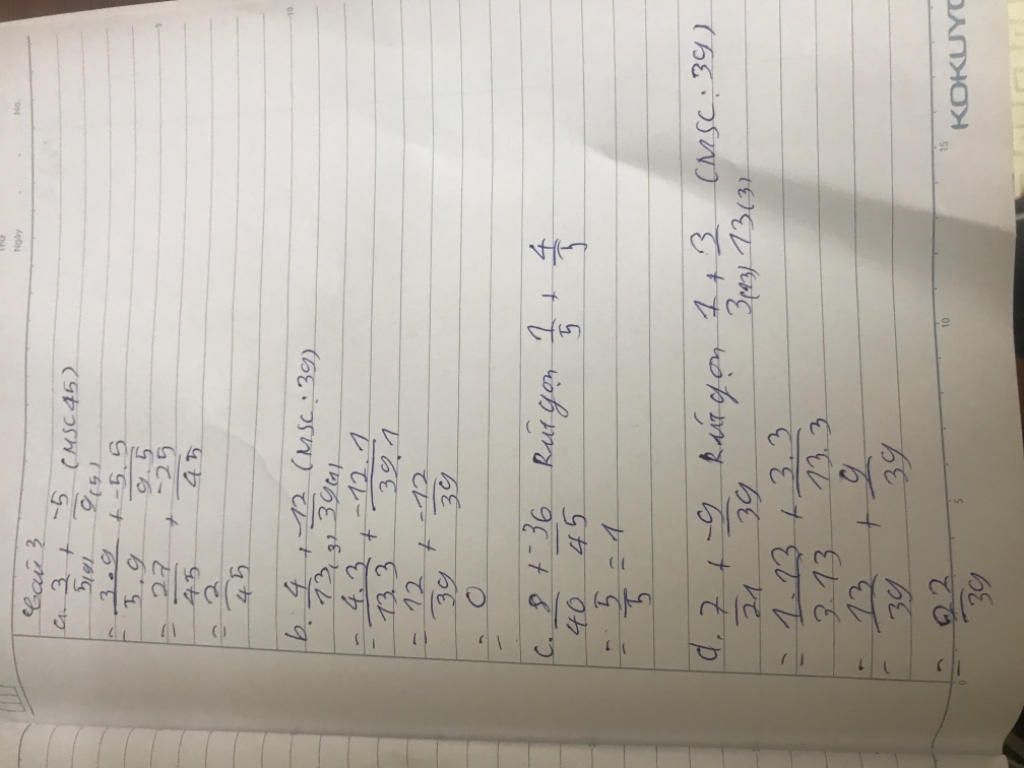 No.
Ngày
Bài 3
a. 3/5(9) + -5/9(5) (MSC 45)
= 3.9/5.9 + -5.5/9.5
= 27/45 + -25/45
= 2/45
b. 4/13(3) + -12/39(1) (MSC: 39)
= 4.3/13.3 + -12.1/39.1
= 12/39 + -12/39
= 0
c. 8/40 + -36/45 Rút gọn 1/5 + 4/5
= 5/5 = 1
d. 7/21 + -9/39 Rút gọn 1/3(13) + 3/13(3) (MSC: 39)
= 1.13/3.13 + 3.3/13.3
= 13/39 + 9/39
= 22/39
0 5 10 15
KOKUYO